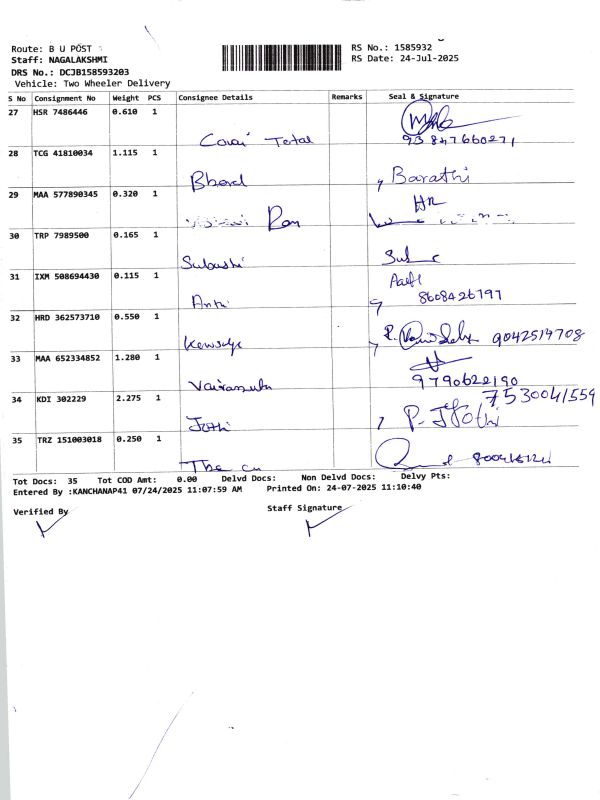 Route: B U POST
RS No.: 1585932
Staff: NAGALAKSHMI
RS Date: 24-Jul-2025
DRS No.: DCJB158593203
Vehicle: Two Wheeler Delivery
S No Consignment No Weight PCS Consignee Details Remarks Seal & Signature
27 HSR 7486446 0.610 1
93847660271
28 TCG 41810034 1.115 1
Barathi
29 MAA 577890345 0.320 1
HR
Ram
30 TRP 7989500 0.165 1
Subashi
31 IXM 508694430 0.115 1
8608426797
32 HRD 362573710 0.550 1
9042514708
33 MAA 652334852 1.280 1
9790622190
Vairamuthu
34 KDI 302229 2.275 1
7530041559
Jothi P. Jothi
35 TRZ 151003018 0.250 1
Tot Docs: 35 Tot COD Amt: 0.00 Delvd Docs: Non Delvd Docs: Delvy Pts:
Entered By :KANCHANAP41 07/24/2025 11:07:59 AM Printed On: 24-07-2025 11:10:40
Verified By Staff Signature